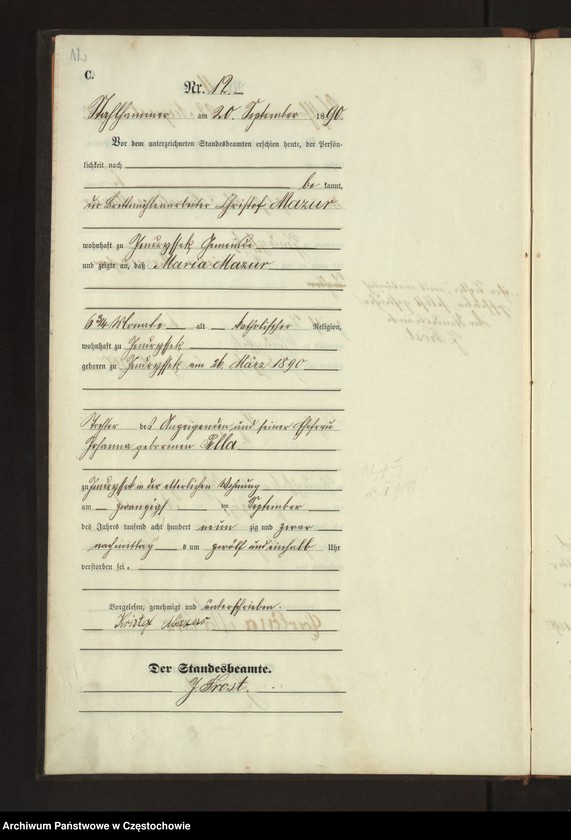 12
C.
Nr. 12.
Stahlhammer am 20. September 1890.
Vor dem unterzeichneten Standesbeamten erschien heute, der Persön-
lichkeit nach
be kannt,
der Brettmühlenarbeiter Christof Mazur
wohnhaft zu Jendryssek Gemeinde
und zeigte an, daß Maria Mazur
6 3/4 Monate alt katholischer Religion,
wohnhaft zu Jendryssek
geboren zu Jendryssek am 26. März 1890
Tochter des Anzeigenden und seiner Ehefrau
Johanna geborenen Lella
zu Jendryssek in der elterlichen Wohnung
am zwanzigs ten September
des Jahres tausend acht hundert neun zig und zwar
nachmittag s um zwölf und einhalb Uhr
verstorben sei.
Vorgelesen, genehmigt und unterschrieben.
Kristof Mazur
Der Standesbeamte.
J. Frost.
Archiwum Państwowe w Częstochowie